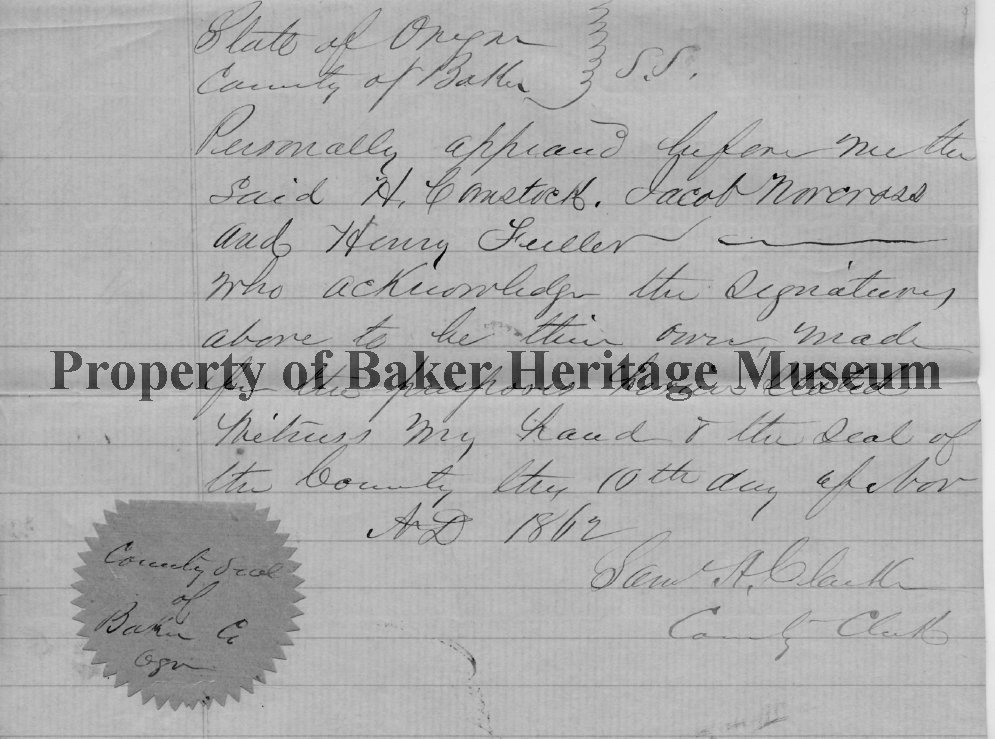 State of Oregon
County of Baker } S.S.
Personally appeard before me the
said H. Comstock. Jacob Norcross
and Henry Fuller
who acknowledge the signatures
above to be their own, made
for the purposes herein stated
Witness my hand & the seal of
the County this 10th day of Nov
AD 1862
Saml H. Clarke
County Clerk
County Seal
of
Baker Co
Ogn
Property of Baker Heritage Museum